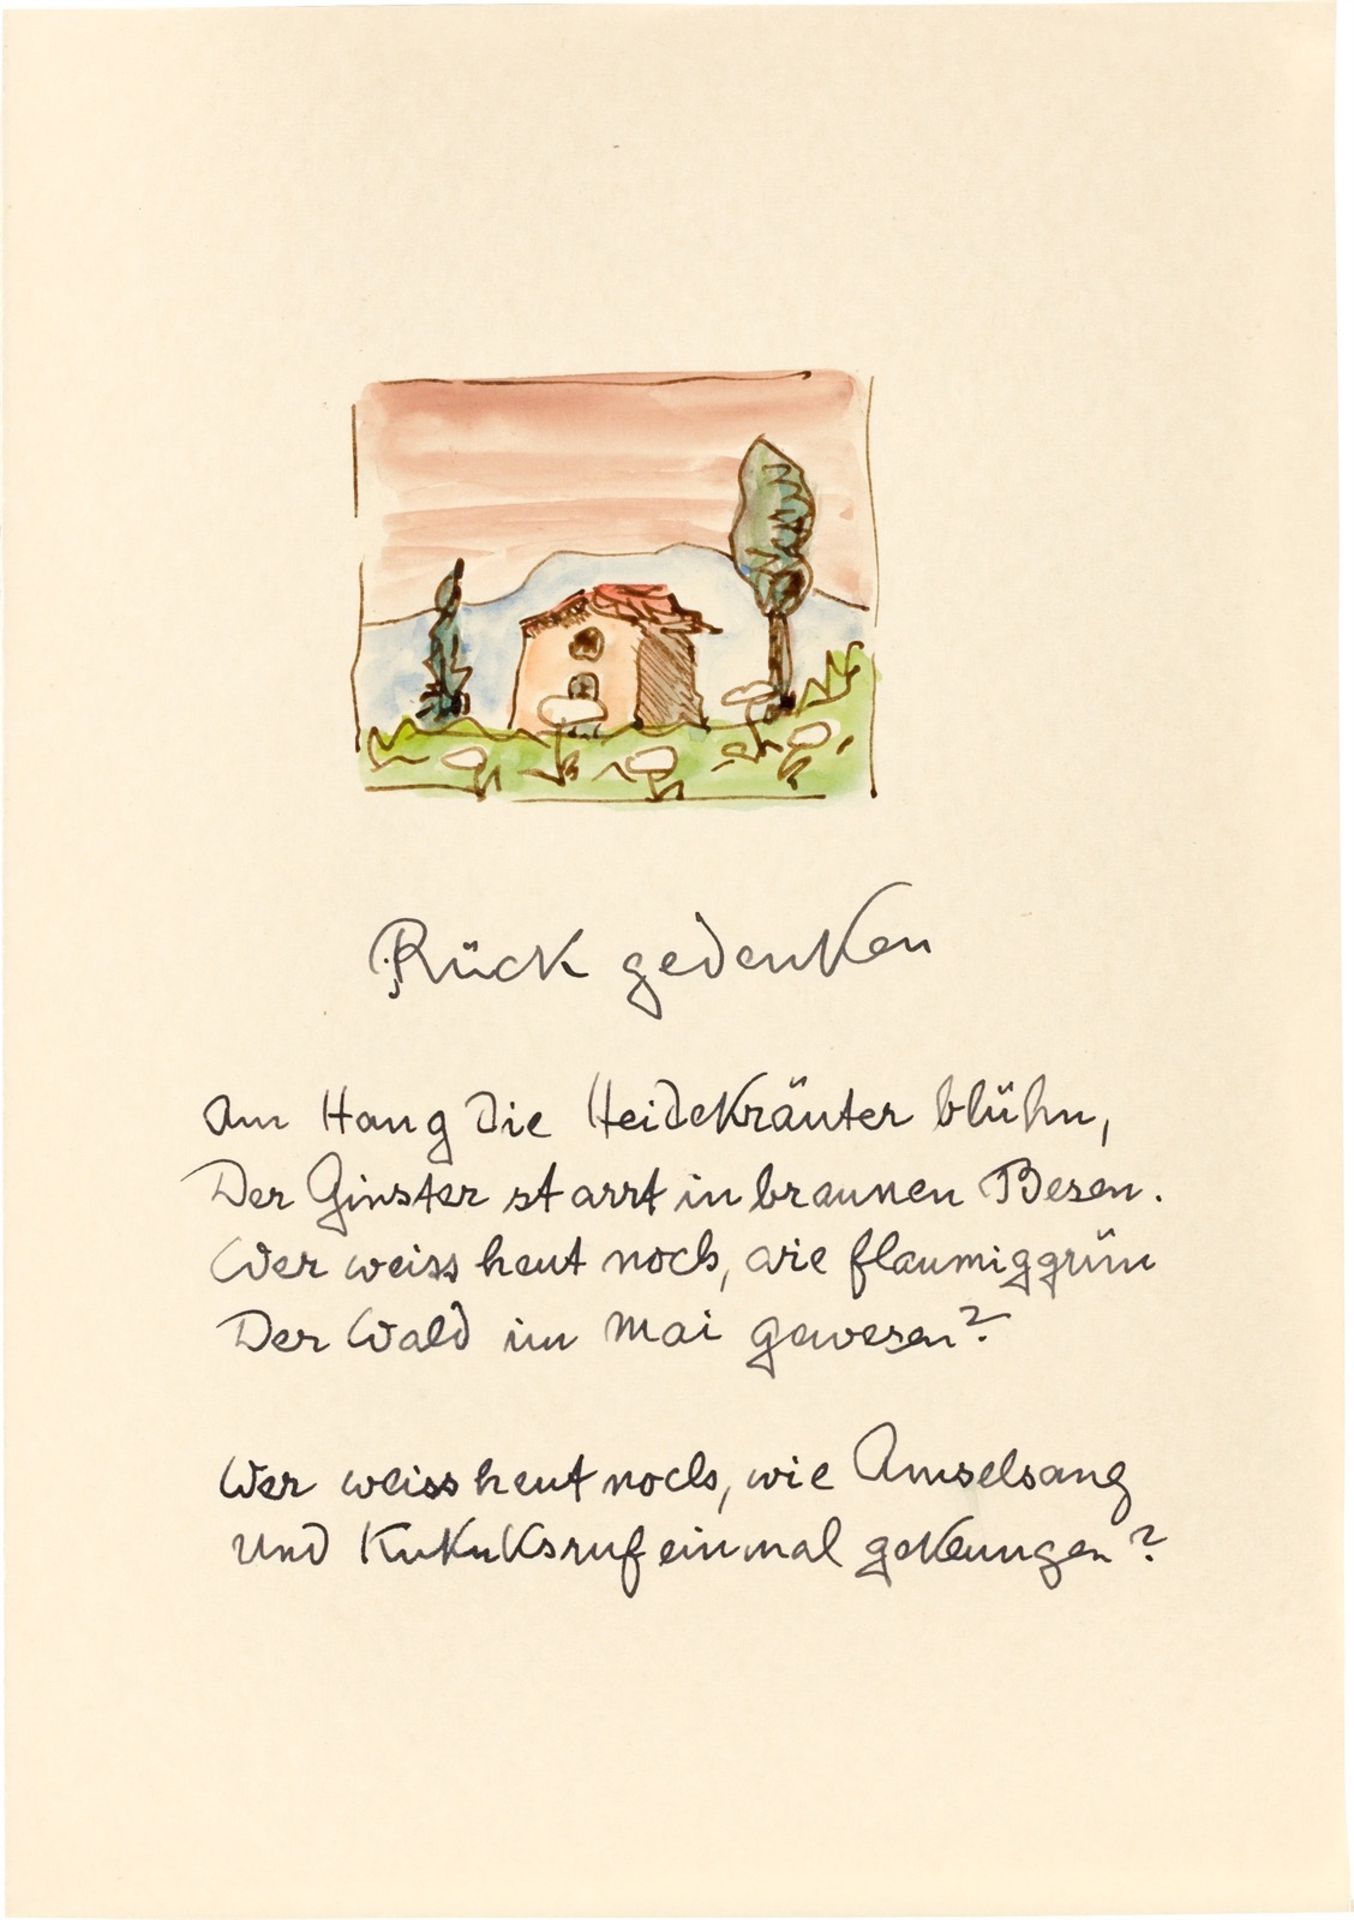 Rückgedenken
Am Hang die Heidekräuter blühn,
Der Ginster starrt in braunen Besen.
Wer weiss heut noch, wie flaumiggrün
Der Wald im Mai gewesen?
Wer weiss heut noch, wie Amselsang
Und Kukuksruf einmal geklungen?